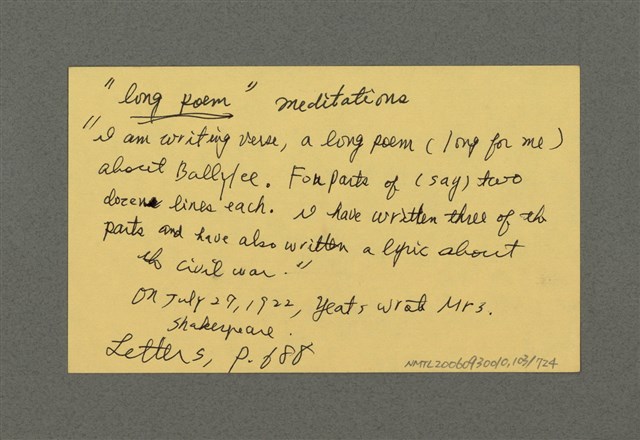 "long poem" meditations
"I am writing verse, a long poem (long for me)
about Ballylee. Four parts of (say) two
dozen lines each. I have written three of the
parts and have also written a lyric about
the civil war."
On July 27, 1922, Yeats wrote Mrs.
Shakespeare.
Letters, p. 688
NMTL20060930010,103/724